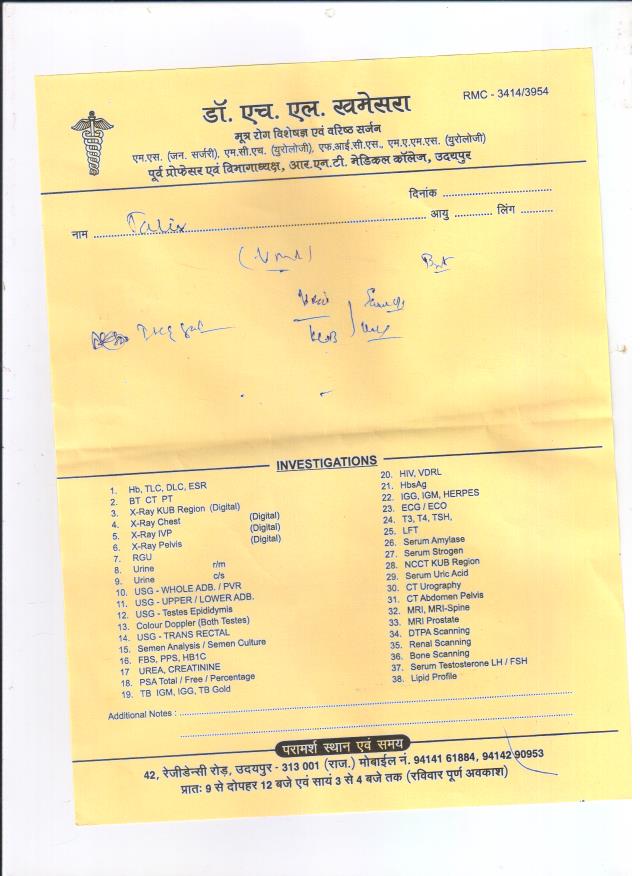 डॉ. एच. एल. खमेसरा
RMC - 3414/3954
मूत्र रोग विशेषज्ञ एवं वरिष्ठ सर्जन
एम.एस. (जन. सर्जरी), एम.सी.एच. (युरोलोजी), एफ.आई.सी.एस., एम.ए.एम.एस. (युरोलोजी)
पूर्व प्रोफेसर एवं विभागाध्यक्ष, आर.एन.टी. मेडिकल कॉलेज, उदयपुर
दिनांक
नाम आयु लिंग
INVESTIGATIONS
1. Hb, TLC, DLC, ESR
2. BT CT PT
3. X-Ray KUB Region (Digital)
4. X-Ray Chest (Digital)
5. X-Ray IVP (Digital)
6. X-Ray Pelvis (Digital)
7. RGU
8. Urine r/m
9. Urine c/s
10. USG - WHOLE ADB. / PVR
11. USG - UPPER / LOWER ADB.
12. USG - Testes Epididymis
13. Colour Doppler (Both Testes)
14. USG - TRANS RECTAL
15. Semen Analysis / Semen Culture
16. FBS, PPS, HB1C
17 UREA, CREATININE
18. PSA Total / Free / Percentage
19. TB IGM, IGG, TB Gold
20. HIV, VDRL
21. HbsAg
22. IGG, IGM, HERPES
23. ECG / ECO
24. T3, T4, TSH,
25. LFT
26. Serum Amylase
27. Serum Strogen
28. NCCT KUB Region
29. Serum Uric Acid
30. CT Urography
31. CT Abdomen Pelvis
32. MRI, MRI-Spine
33. MRI Prostate
34. DTPA Scanning
35. Renal Scanning
36. Bone Scanning
37. Serum Testosterone LH / FSH
38. Lipid Profile
Additional Notes :
परामर्श स्थान एवं समय
42, रेजीडेन्सी रोड़, उदयपुर - 313 001 (राज.) मोबाईल नं. 94141 61884, 94142 90953
प्रातः 9 से दोपहर 12 बजे एवं सायं 3 से 4 बजे तक (रविवार पूर्ण अवकाश)